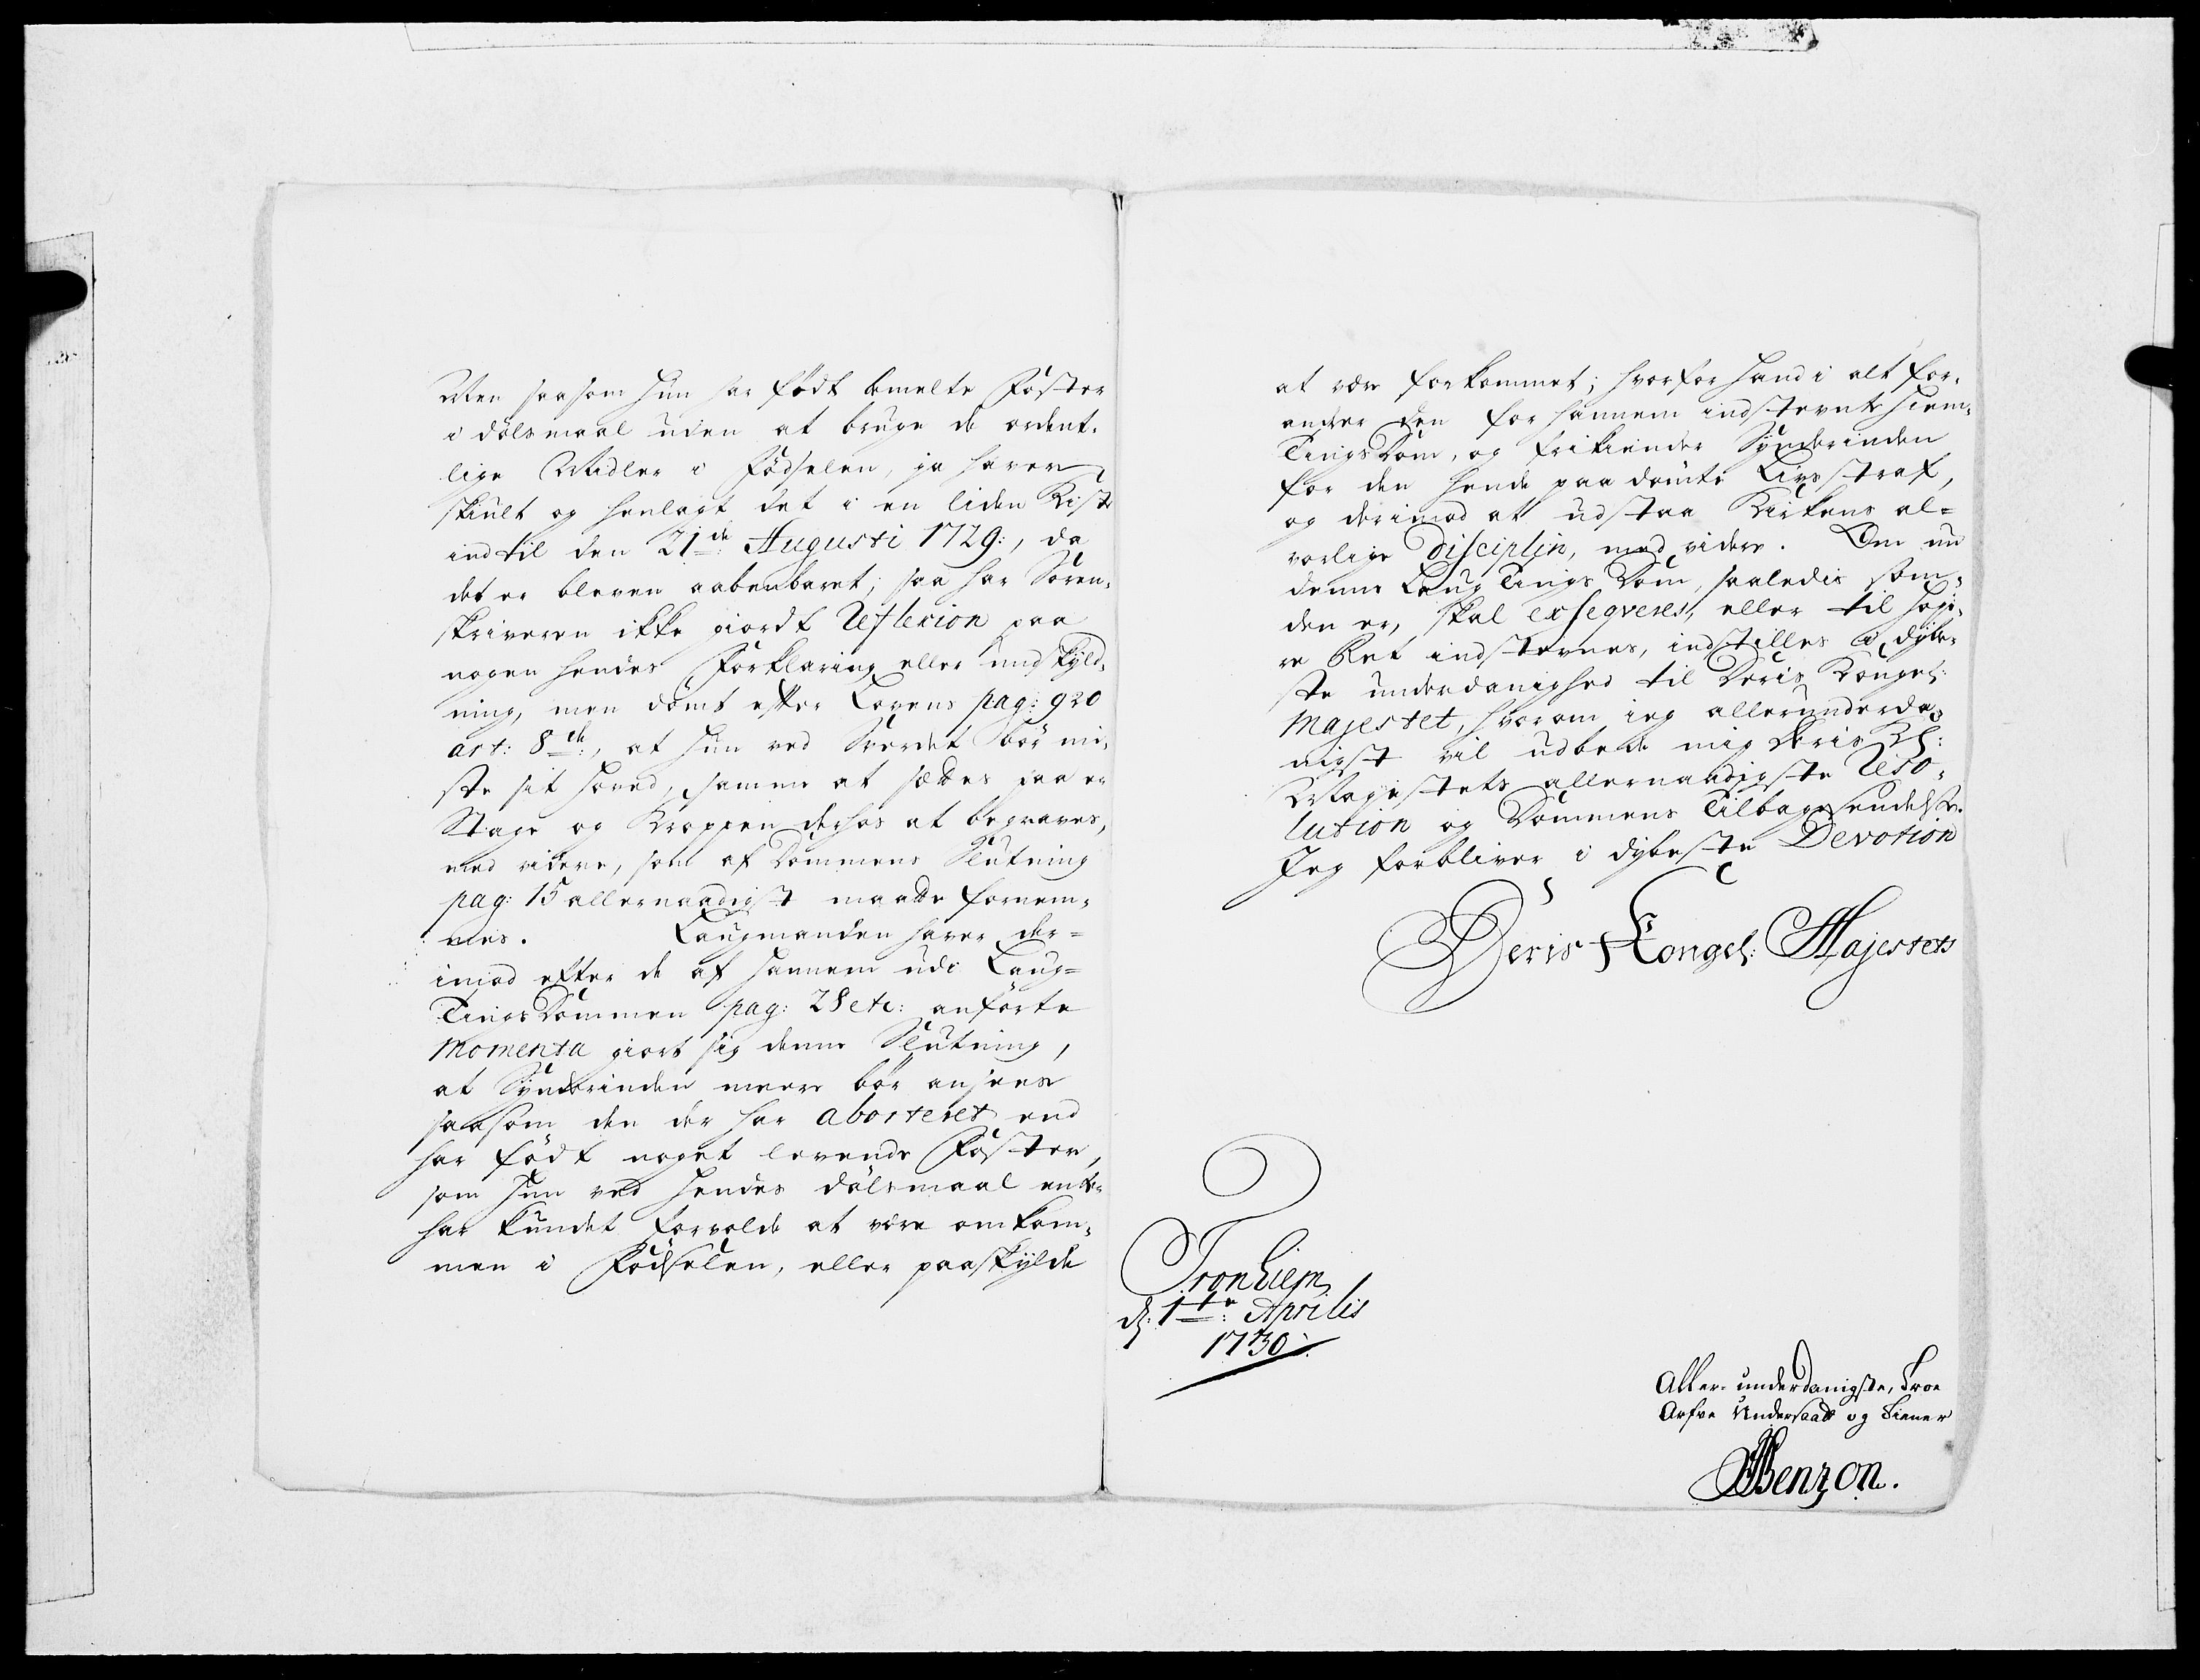 Men saasom hun har födt bemelte Foster
i dölsmaal uden at bruge de ordent-
lige Midler i Födselen, ja haver
skiult og henlagt det i en liden Kiste
indtil den 21de Augusti 1729:, da
det er bleven aabenbaret; saa har Soren-
skriveren ikke giordt Reflexion paa
nogen hendes Forklaring eller undskyld-
ning, men dömt efter Lovens pag: 920
art: 8de:, at hun ved Sverdet bör mi-
ste sit Hoved, samme at sættes paa en
Stage og Kroppen derhos at begraves,
med videre, som af Dommens Slutning
pag: 15 allernaadigst maatte fornem-
mes. Laugmanden haver der=
imod efter de af hannem udi Laug=
Tings Dommen pag: 28 etc: anförte
Momenta giort sig denne Slutning,
at Synderinden meere bör ansees
saasom den der har aborteret end
har födt noget levende Foster,
som hun ved hendes dölsmaal enten
har kundet forvolde at være omkom-
men i Födselen, eller paaskylde
at være forkommet; hvorfor hand i alt for-
andrer den for hannem indstevnte Hiem-
Tings Dom, og frikiender Synderinden
for den hende paa dömte Livsstraf,
og derimod at udstaa Kirkens al=
vorlige Disciplin, med videre. Om nu
denne Laug Tings Dom, saaledis som
den er, skal exseqveres, eller til höje-
re Ret indstevnes, indstilles i dybe-
ste underdanighed til Deris Kongel:
Majestet, hvorom ieg allerunderda-
nigst vil udbede mig Deris Kl:
Majestets allernaadigste Reso-
lution og Dommens Tilbagesendelse.
Jeg forbliver i dybeste Devotion
Deris Kongel: Majestets
Tronhiem
d: 1te: Aprilis
1730
Aller-underdanigste, Troe
Arfve Undersaatt og Tiener
Benzon.